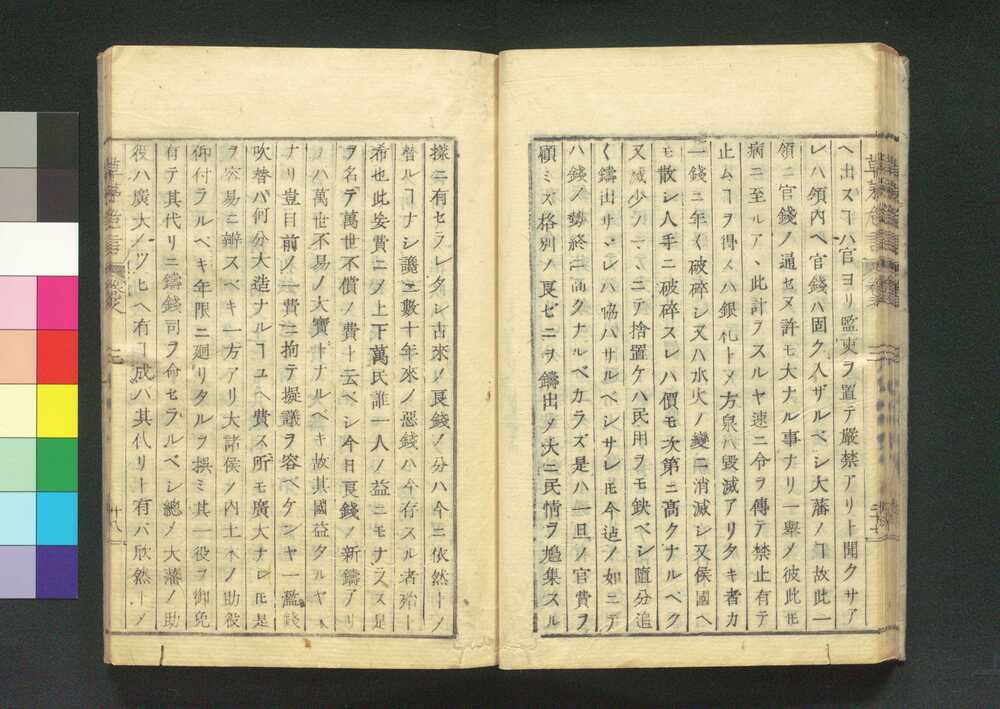 ヘ出スヿハ官ヨリ監吏ヲ置テ厳禁アリト聞クサア
レハ領内ヘ官錢ハ固ク入ザルベシ大藩ノヿ故此一
領ニ官錢ノ通セヌ許モ大ナル事ナリ一擧ノ彼此𪜈
病ニ至ルアヽ此計ヲスルヤ速ニ令ヲ傳テ禁止有テ
止ムヿヲ得メハ銀札トメ方泉ハ毀滅アリタキ者カ
一錢ニ年〱破碎シ又ハ水火ノ變ニ消滅シ又侯國ヘ
モ散シ人手ニ破碎スレハ價モ次第ニ高クナルベク
又減少ノマヽニテ捨置ケハ民用ヲモ鈌ベシ隨分追
〱鑄出サヾレハ協ハサルベシサレ𪜈今迠ノ如ニテ
ハ錢ノ勢終ニ高クナルベカラズ是ハ一旦ノ官費ヲ
顧ミズ格別ノ良ゼニヲ鑄出メ大ニ民情ヲ鳩集スル
様ニ有セラレタシ古來ノ良錢ノ分ハ今ニ依然トメ
替ルヿナシ纔ニ數十年來ノ惡錢ハ今存スル者殆ト
希也此妄費ニメ上下萬民誰一人ノ益ニモナラス是
ヲ名テ萬世不償ノ費ト云ベシ今日良錢ノ新鑄アリ
ハ萬世不易ノ大寳トナルベキ故其國益タルヤ
ナリ豈目前ノ一費ニ拘テ擬議ヲ容ベケンヤ一濫錢
吹替バ何分大造ナルヿユヘ費ス所モ廣大ナレ𪜈是
ヲ容易ニ辨スベキ一方アリ大諸侯ノ内土木ノ助役
仰付ラルベキ年限ニ廻リタルヲ撰ミ其一役ヲ御免
有テ其代リニ鑄錢司ヲ命セラルベシ總メ大藩ノ助
役ハ廣大ノツヒヘ有ヿ成ハ其代リト有バ欣然トメ